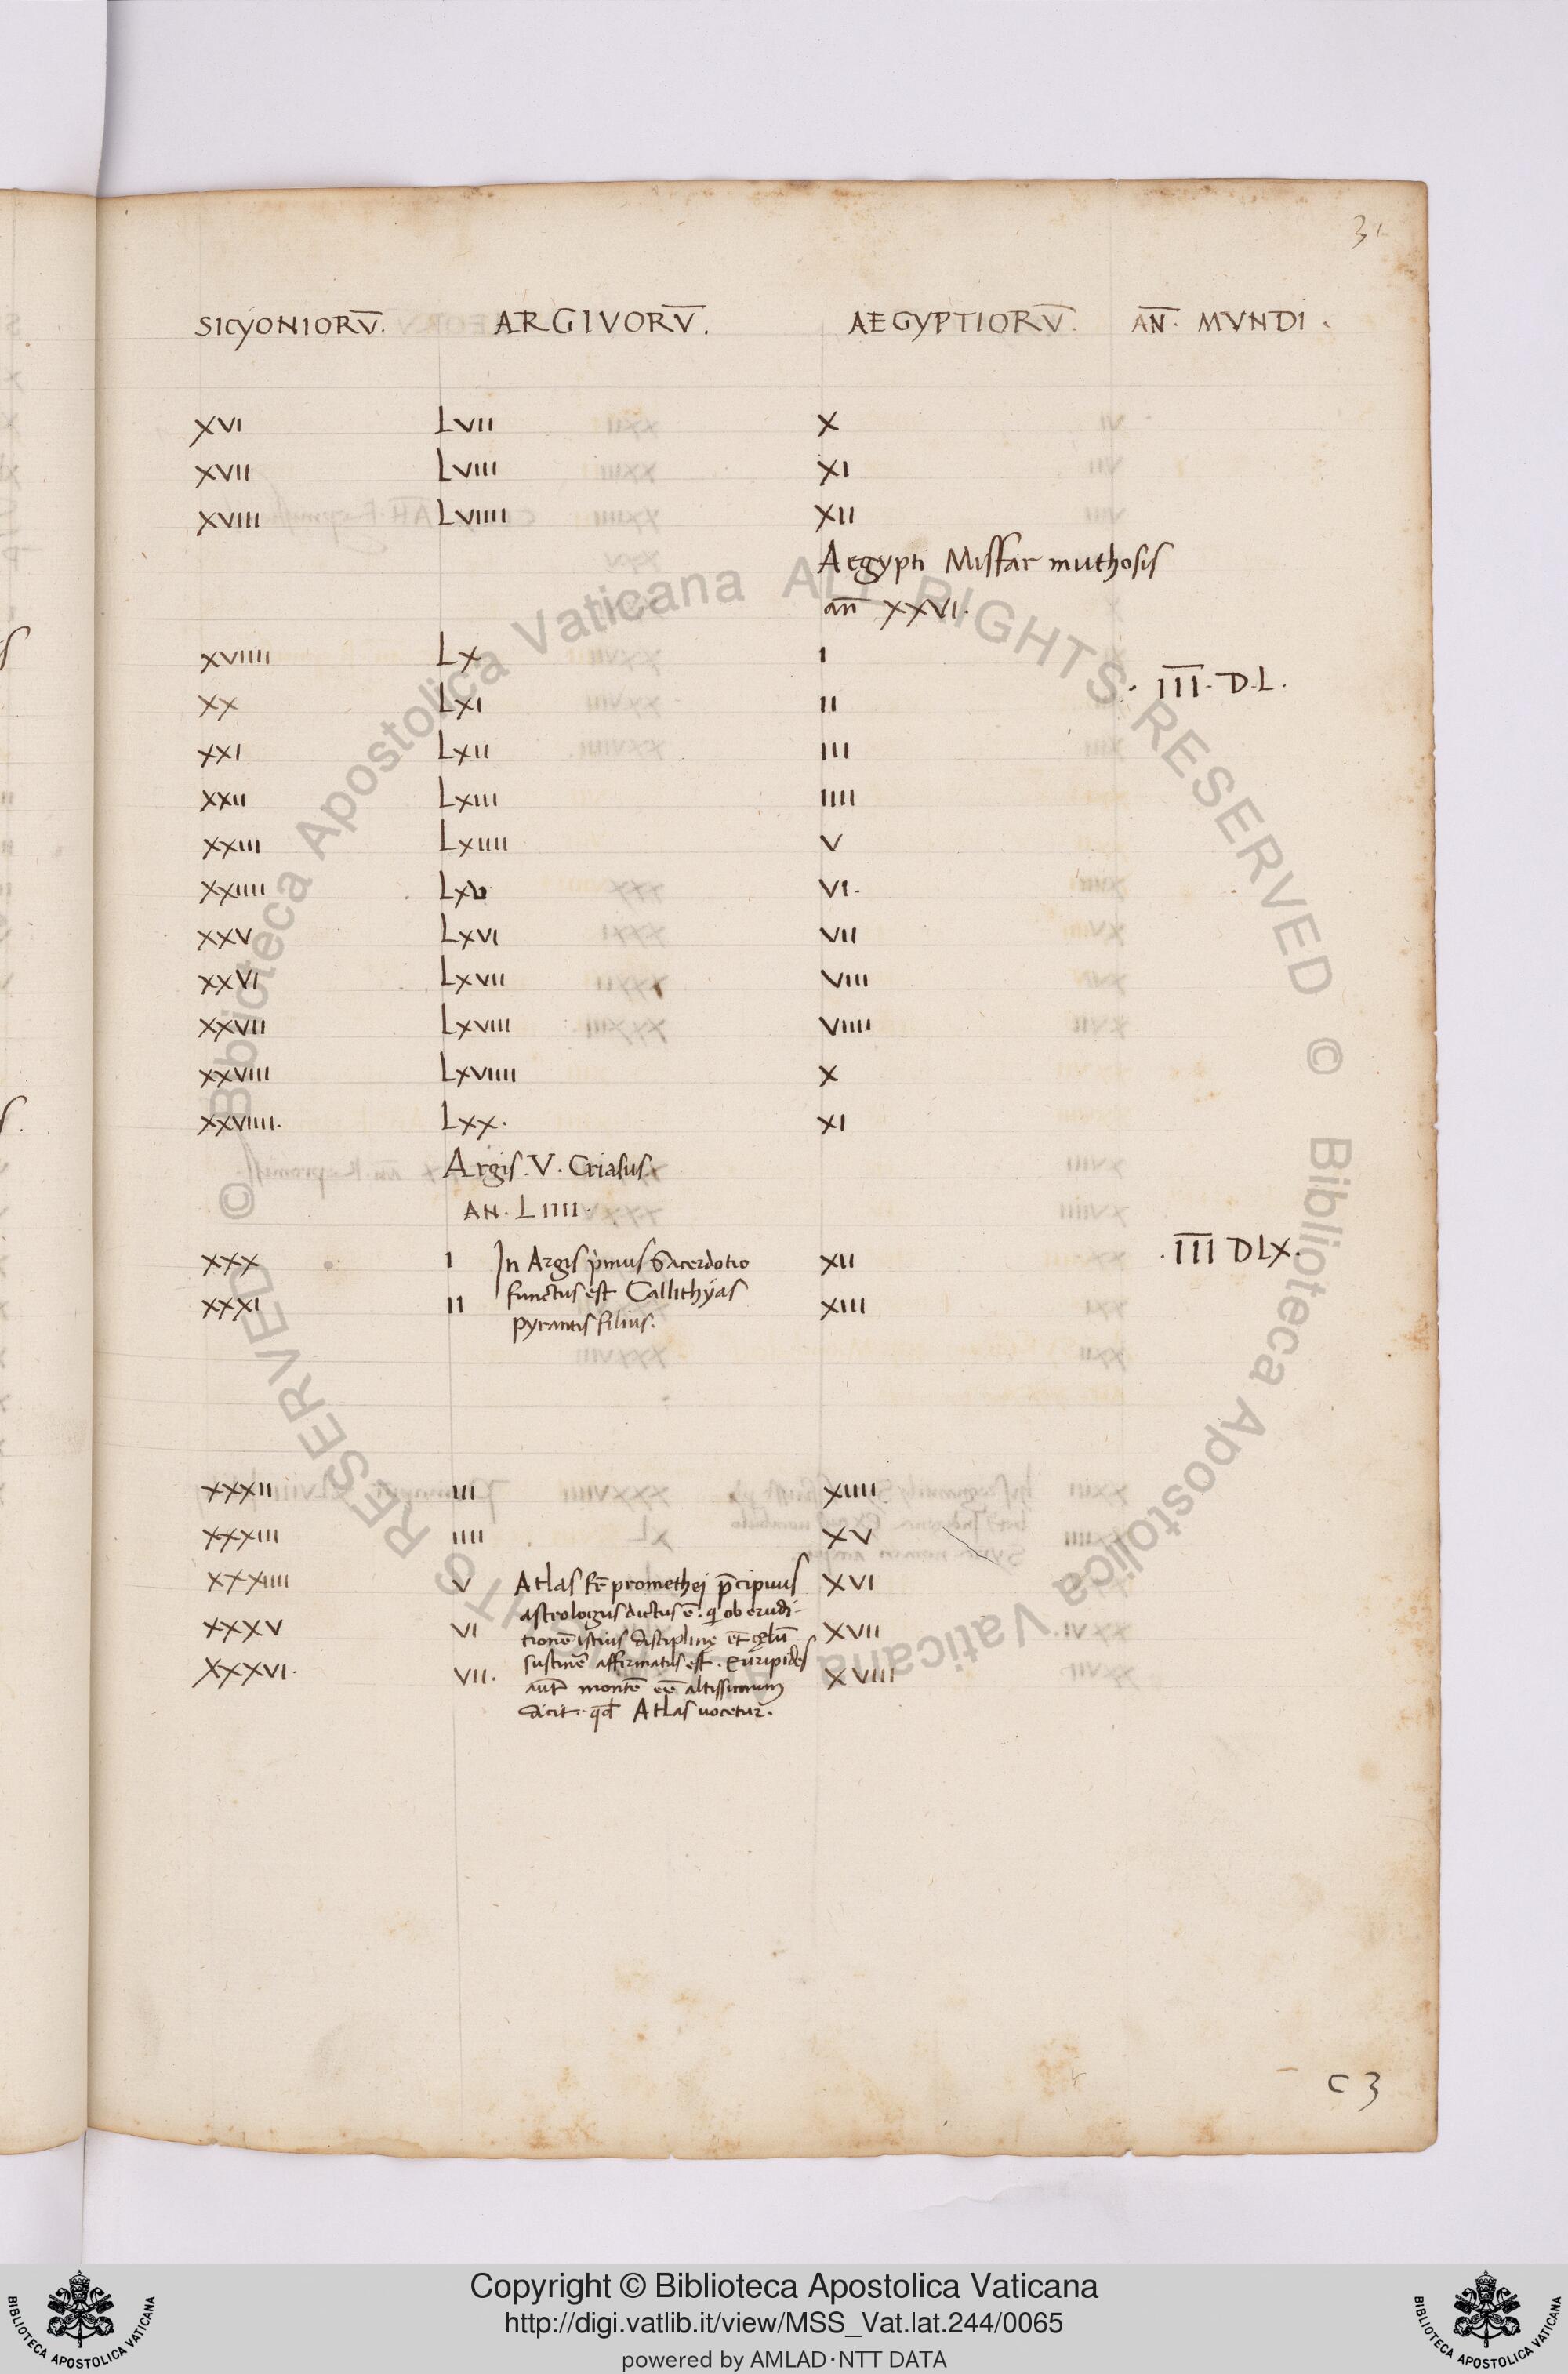 3
SICYONIORV̅. ARGIVORV̅. AEGYPTIORV̅. AN̅. MVNDI.
XVI LVII X
XVII LVIII XI
XVIII LVIIII XII
Aegypti Misfar muthosis
an̅ XXVI.
XVIIII LX I
. I̅I̅I̅. D.L.
XX LXI II
XXI LXII III
XXII LXIII IIII
XXIII LXIIII V
XXIIII LXV VI.
XXV LXVI VII
XXVI LXVII VIII
XXVII LXVIII VIIII
XXVIII LXVIIII X
XXVIIII. LXX. XI
Argis. V. Criasus.
AN. LIIII.
. I̅I̅I̅ DLX.
XXX I In Argis p̍mus Sacerdotio XII
functus est Callithyas
XXXI II XIII
pyrantis filius.
XXXII III XIIII
XXXIII IIII XV
XXXIIII V Atlas fr̄ promethei p̄cipuus XVI
astrologus dictus ē. q̍ ob erudi-
XXXV VI tionē istius disciplinę et̄ cęlū XVII
sustinē affirmatus est. Euripides
XXXVI. VII. XVIII
aut̄ montē eē altissimum
dicit. qd̄ Atlas uocetur.
C 3
© Biblioteca Apostolica Vaticana ALL RIGHTS RESERVED © Biblioteca Apostolica Vaticana ALL RIGHTS RESERVED
Copyright © Biblioteca Apostolica Vaticana
http://digi.vatlib.it/view/MSS_Vat.lat.244/0065
powered by AMLAD·NTT DATA
BIBLIOTECA APOSTOLICA VATICANA
BIBLIOTECA APOSTOLICA VATICANA